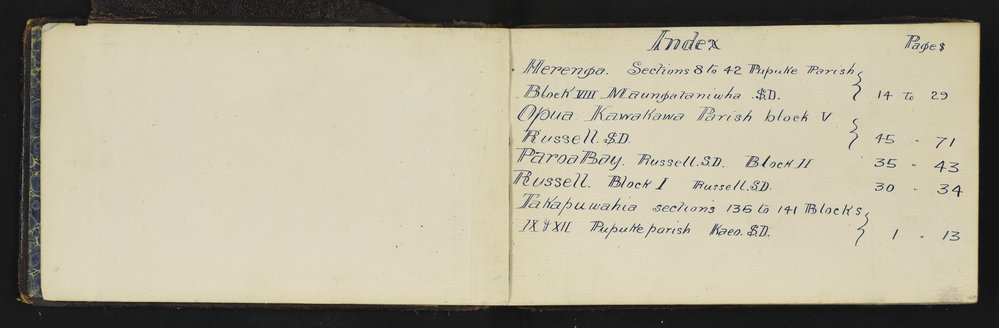 Index Pages
Herenga. Sections 8 to 42 Pupuke Parish
Block VIII Maungataniwha S.D. 14 to 29
Opua Kawakawa Parish block V
Russell. S.D. 45 " 71
Paroa Bay. Russell. S.D. Block II 35 " 43
Russell. Block I Russell. S.D. 30 " 34
Takapuwahia sections 136 to 141 Blocks
IX & XII Pupuke parish Kaeo. S.D. 1 " 13